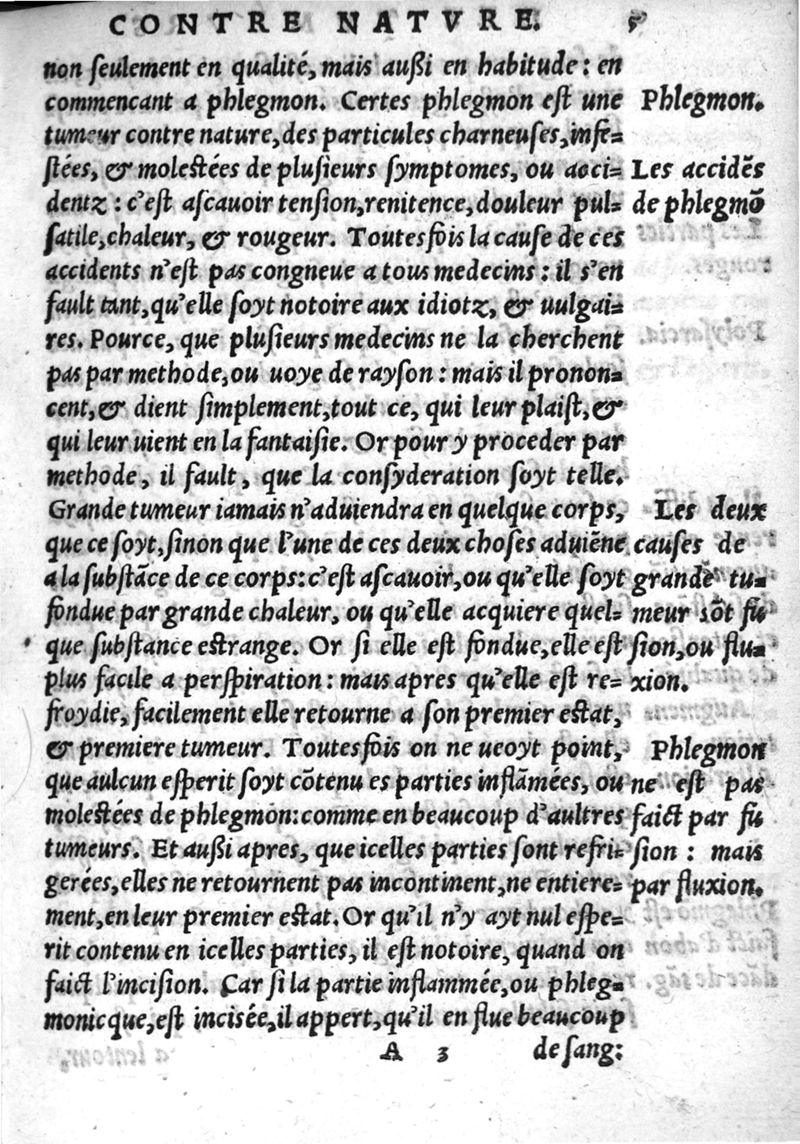 CONTRE NATVRE. 5
non ſeulement en qualité, mais außi en habitude: en
commencant a phlegmon. Certes phlegmon eſt une
tumeur contre nature, des particules charneuſes, infe=
ſtées, & moleſtées de pluſieurs ſymptomes, ou acci=
dentz: c'eſt aſcauoir tenſion, renitence, douleur pul=
ſatile, chaleur, & rougeur. Toutesfois la cauſe de ces
accidents n'eſt pas congneue a tous medecins: il s'en
fault tant, qu'elle ſoyt notoire aux idiotz, & uulgai=
res. Pource, que pluſieurs medecins ne la cherchent
pas par methode, ou uoye de rayſon: mais il pronon=
cent, & dient ſimplement, tout ce, qui leur plaiſt, &
qui leur uient en la fantaiſie. Or pour y proceder par
methode, il fault, que la conſyderation ſoyt telle.
Grande tumeur iamais n'aduiendra en quelque corps,
que ce ſoyt, ſinon que l'une de ces deux choſes aduiēne
a la ſubſtāce de ce corps: c'eſt aſcauoir, ou qu'elle ſoyt
fondue par grande chaleur, ou qu'elle acquiere quel=
que ſubſtance eſtrange. Or ſi elle eſt fondue, elle eſt
plus facile a perſpiration: mais apres qu'elle eſt re=
froydie, facilement elle retourne a ſon premier eſtat,
& premiere tumeur. Toutesfois on ne ueoyt point,
que aulcun eſperit ſoyt cōtenu es parties inflāmées, ou
moleſtées de phlegmon: comme en beaucoup d'aultres
tumeurs. Et außi apres, que icelles parties ſont refri=
gerées, elles ne retournent pas incontinent, ne entiere=
ment, en leur premier eſtat. Or qu'il n'y ayt nul eſpe=
rit contenu en icelles parties, il eſt notoire, quand on
faict l'inciſion. Car ſi la partie inflammée, ou phleg=
monicque, eſt inciſée, il appert, qu'il en flue beaucoup
A 3 de ſang:
Phlegmon.
Les accidēs
de phlegmō
Les deux
cauſes de
grande tu=
meur sōt fu
ſion, ou flu=
xion.
Phlegmon
ne eſt pas
faict par fu
ſion: mais
par fluxion.